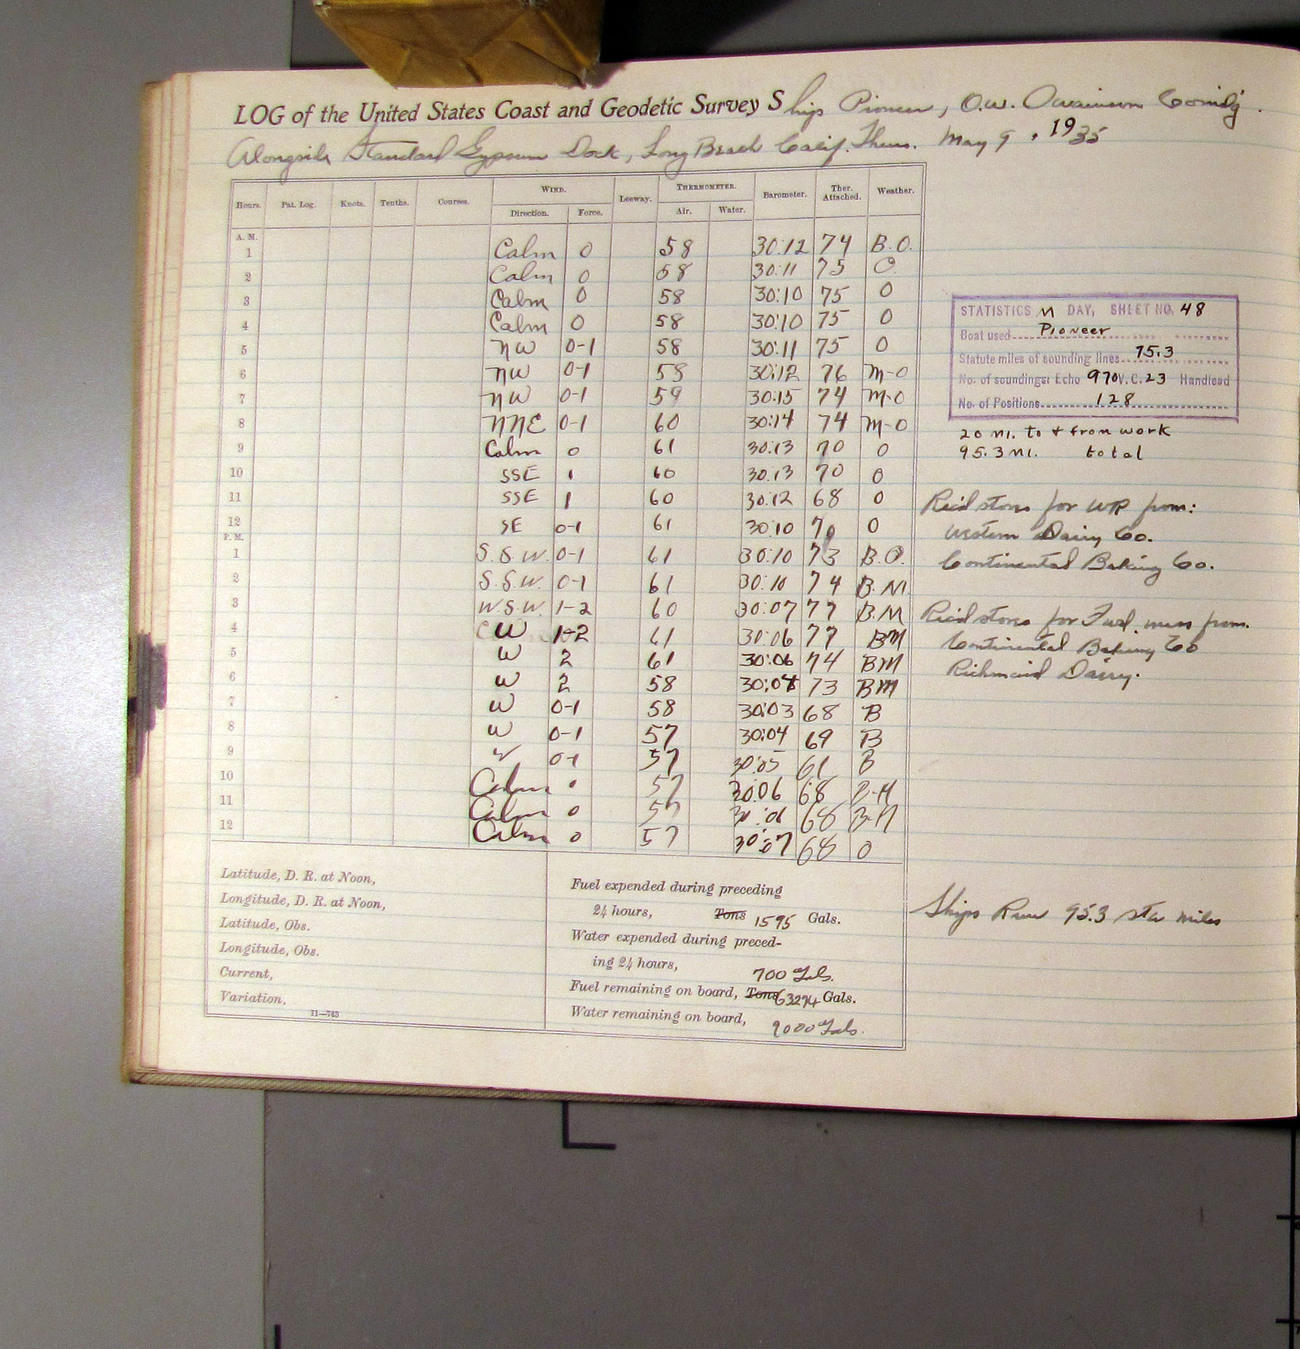 LOG of the United States Coast and Geodetic Survey Ships Pioneer, O.W. Swainson Comdg.
Alongside Standard Gypsum Dock, Long Beach Calif. Thurs. May 9, 1935
Hours. Pat. Log. Knots. Tenths. Courses. WIND. Leeway. THERMOMETER. Barometer. Ther. Attached. Weather.
Direction. Force. Air. Water.
A. M.
1 Calm 0 58 30:12 74 B.O.
2 Calm 0 58 30:11 75 O
3 Calm 0 58 30:10 75 O
4 Calm 0 58 30:10 75 O
5 NW 0-1 58 30:11 75 O
6 NW 0-1 58 30:12 76 M-O
7 NW 0-1 59 30:15 74 M-O
8 NNE 0-1 60 30:14 74 M-O
9 Calm 0 61 30:13 70 O
10 SSE 1 60 30:13 70 O
11 SSE 1 60 30:12 68 O
12 SE 0-1 61 30:10 70 O
P. M.
1 S.S.W. 0-1 61 30:10 73 B.O.
2 S.S.W. 0-1 61 30:10 74 B.M.
3 W.S.W. 1-2 60 30:07 77 B.M
4 W 1-2 61 30:06 77 BM
5 W 2 61 30:06 74 BM
6 W 2 58 30:04 73 BM
7 W 0-1 58 30:03 68 B
8 W 0-1 57 30:04 69 B
9 W 0-1 57 30:05 61 B
10 Calm 0 57 30:06 68 B-H
11 Calm 0 57 30:06 68 B-H
12 Calm 0 57 30:07 68 O
STATISTICS M DAY, SHEET NO. 48
Boat used Pioneer
Statute miles of sounding lines 75.3
No. of soundings: Echo 970 V.C. 23 Handlead
No. of Positions 128
20 mi. to & from work
95.3 mi. total
Rec'd stores for WR from:
Western Dairy Co.
Continental Baking Co.
Rec'd stores for Fwd. mess from.
Continental Baking Co
Richmaid Dairy.
Ships Run 95.3 sta miles
Latitude, D. R. at Noon,
Longitude, D. R. at Noon,
Latitude, Obs.
Longitude, Obs.
Current,
Variation,
11—743
Fuel expended during preceding
24 hours, Tons 1595 Gals.
Water expended during preced-
ing 24 hours, 700 Gals.
Fuel remaining on board, Tons 63274 Gals.
Water remaining on board, 9000 Gals.